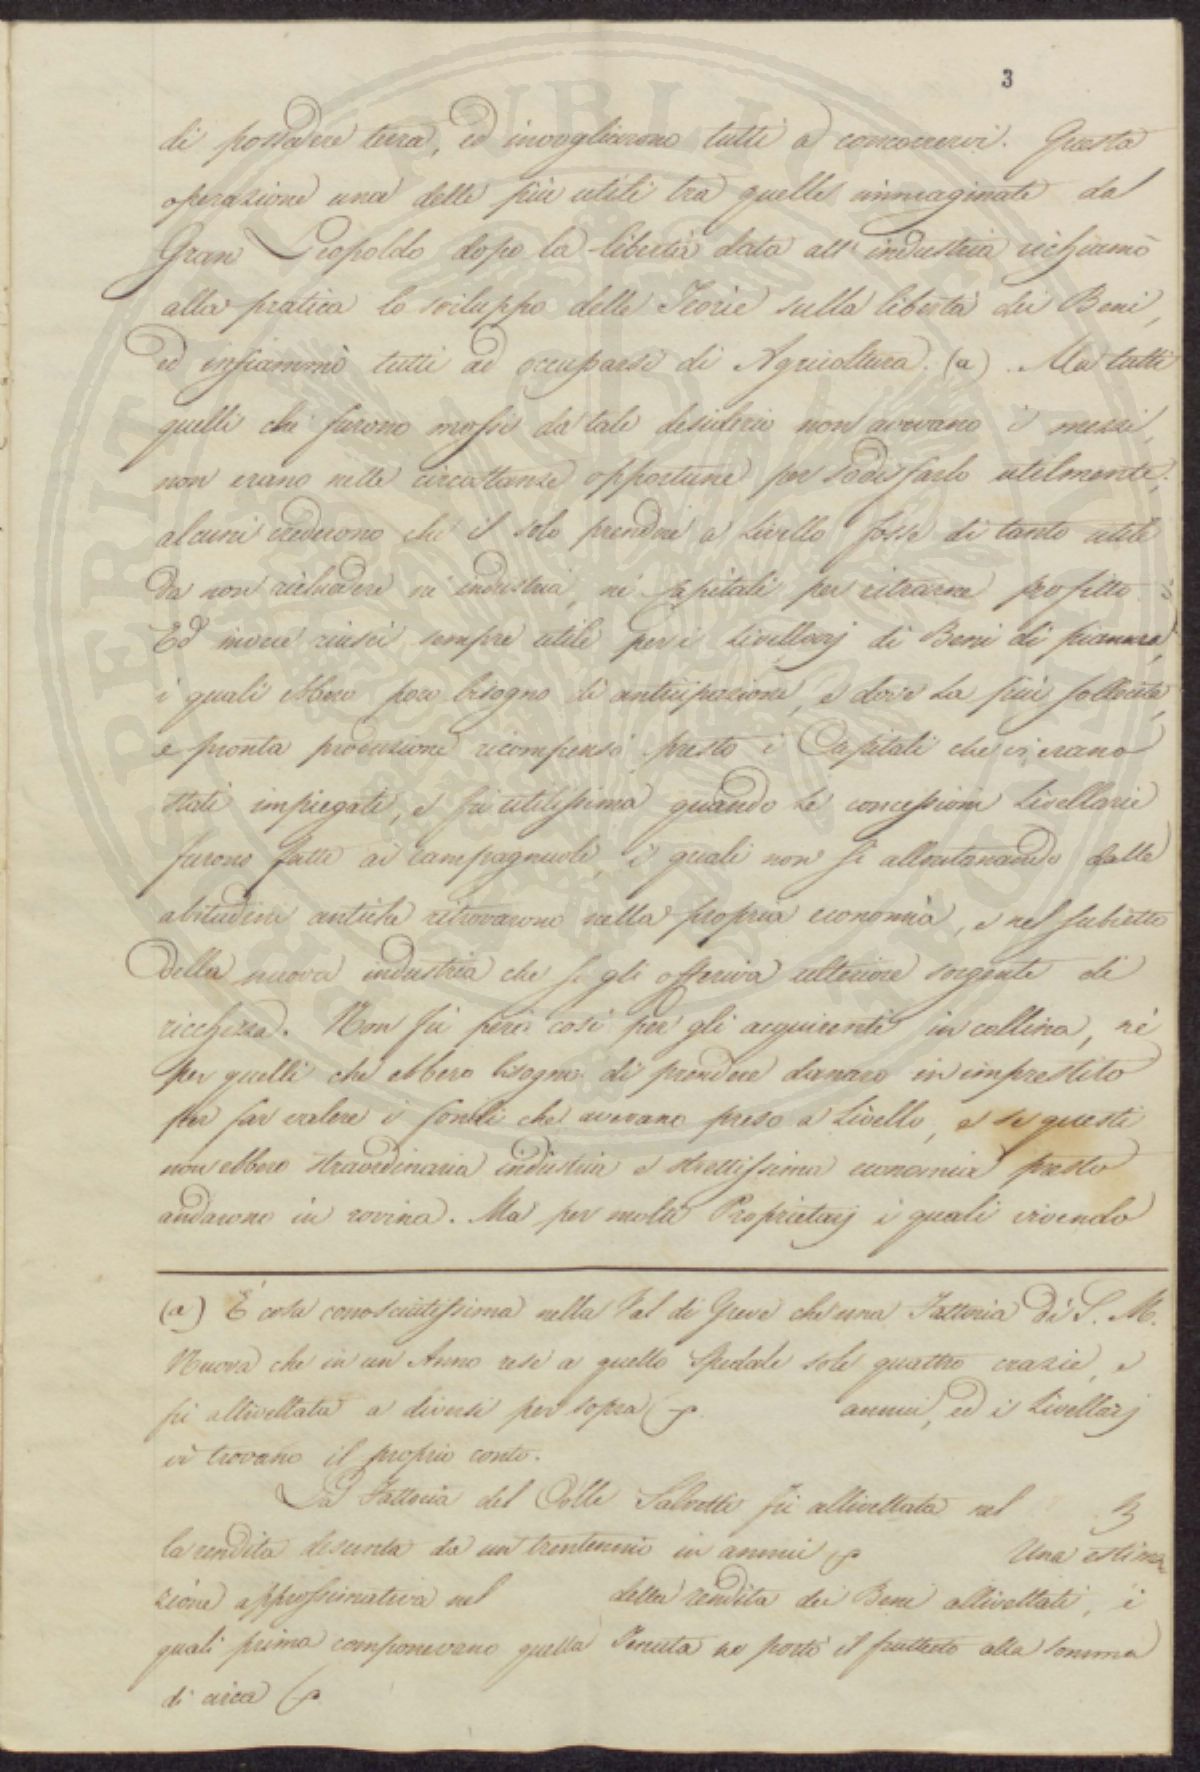 3
di possedere terra, ed invogliarono tutti a concorrervi. Questa
operazione una delle più utili tra quelle immaginate dal
Gran Leopoldo dopo la libertà data all'industria richiamò
alla pratica lo sviluppo delle Teorie sulla libertà dei Beni,
ed infiammò tutti ad occuparsi di Agricoltura. (a). Ma tutti
quelli che furono mossi da tale desiderio non avevano i mezzi,
non erano nelle circostanze opportune per sodisfarlo utilmente;
alcuni crederono che il solo prendere a Livello fosse di tanto utile
da non richiedere nè industria, nè capitali per ritrarne profitto.
Ed invece riuscì sempre utile per i Livellarj di Beni di pianura,
i quali ebbero poco bisogno di anticipazione, e dove la più sollecita,
e pronta produzione ricompensò presto i Capitali che vi erano
stati impiegati, e fu utilissima quando le concessioni Livellarie
furono fatte ai campagnuoli, i quali non si allontanando dalle
abitudini antiche ritrovarono nella propria economia, e nel subietto
della nuova industria che se gli offeriva ulteriore sorgente di
ricchezza. Non fu però così per gli acquirenti in collina, nè
per quelli che ebbero bisogno di prendere danaro in imprestito
per far valere i fondi che avevano preso a Livello, e se questi
non ebbero straordinaria industria e strettissima economia presto
andarono in rovina. Ma per molti Proprietarj i quali vivendo
(a) È cosa conosciutissima nella Val di Greve che una Fattoria di S. M.
Nuova che in un Anno rese a quello Spedale sole quattro crazie, e
fu allivellata a diversi per sopra annui, ed i Livellarj
vi trovano il proprio conto.
La Fattoria del Colle Salvetti fu allivellata nel
la rendita desunta da un trentennio in annui Una estima
zione approssimativa nel della rendita dei Beni allivellati, i
quali prima componevano quella Tenuta ne portò il fruttato alla somma
di circa